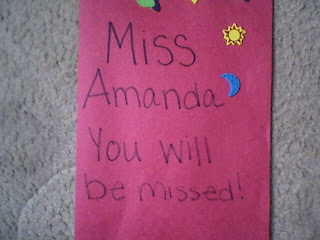 Miss
Amanda
You will
be missed!